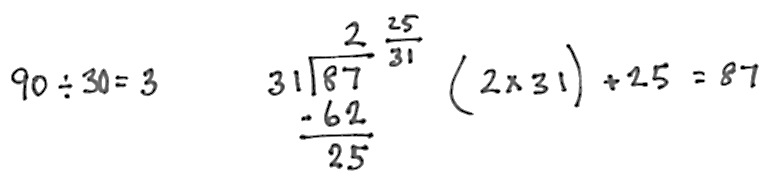 90 ÷ 30 = 3
2 25/31
31 87
- 62
25
(2 x 31) + 25 = 87